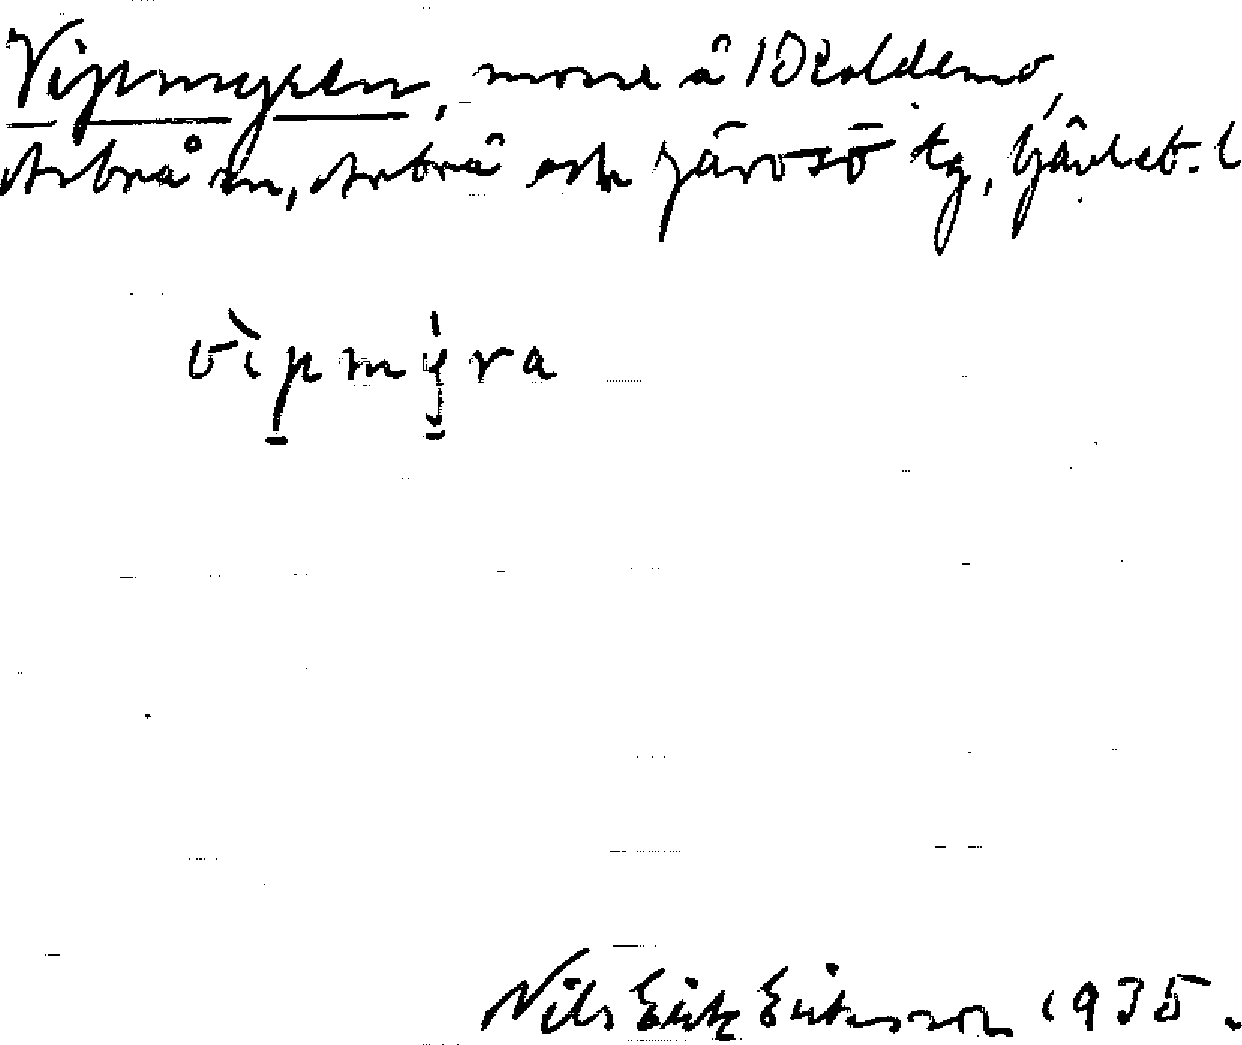 Vipmyren, mosse å 10 Koldemo,
Arbrå sn, Arbrå och Järvsö tg, Gävleb. l
vìpmýra
Nils Erik Eriksson 1935.